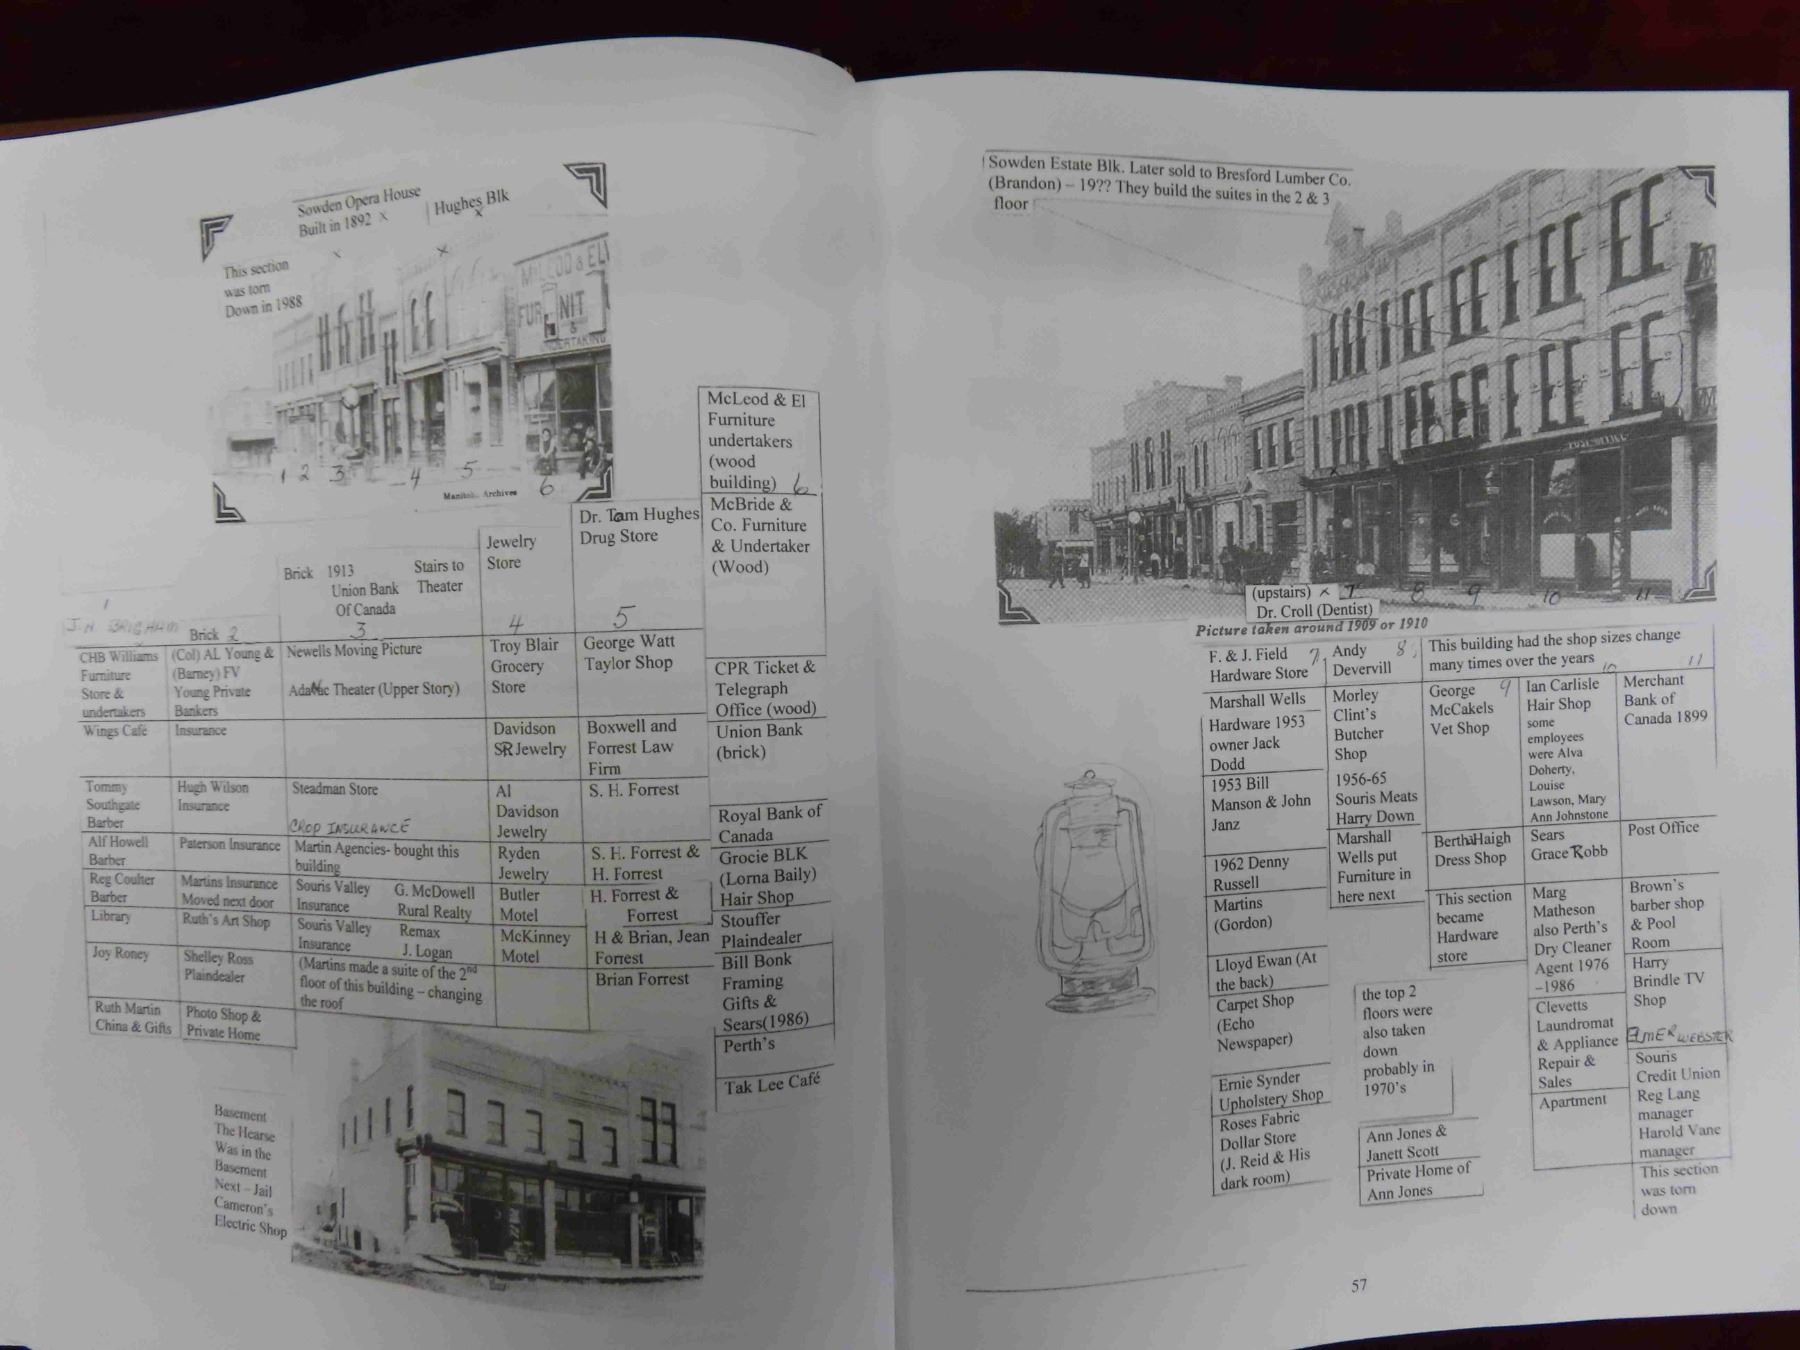 Sowden Opera House
Built in 1892 x
Hughes Blk
x
This section
was torn
Down in 1988
McLEOD & EL
FURNIT
&
UNDERTAKING
1 2 3 4 5 6
Archives
McLeod & El
Furniture
undertakers
(wood
building) 6
McBride &
Co. Furniture
& Undertaker
(Wood)
CPR Ticket &
Telegraph
Office (wood)
Union Bank
(brick)
Royal Bank of
Canada
Grocie BLK
(Lorna Baily)
Hair Shop
Stouffer
Plaindealer
Bill Bonk
Framing
Gifts &
Sears(1986)
Perth's
Tak Lee Café
Dr. Tam Hughes
Drug Store
5
George Watt
Taylor Shop
Boxwell and
Forrest Law
Firm
S. H. Forrest
S. H. Forrest &
H. Forrest
H. Forrest &
Forrest
H & Brian, Jean
Forrest
Brian Forrest
Jewelry
Store
4
Troy Blair
Grocery
Store
Davidson
SR Jewelry
Al
Davidson
Jewelry
Ryden
Jewelry
Butler
Motel
McKinney
Motel
Brick 1913 Stairs to
Union Bank Theater
Of Canada
3
Newells Moving Picture
Theater (Upper Story)
Steadman Store
CROP INSURANCE
Martin Agencies- bought this
building
Souris Valley G. McDowell
Insurance Rural Realty
Souris Valley Remax
Insurance J. Logan
(Martins made a suite of the 2nd
floor of this building – changing
the roof
Brick 2
(Col) AL Young &
(Barney) FV
Young Private
Bankers
Insurance
Hugh Wilson
Insurance
Paterson Insurance
Martins Insurance
Moved next door
Ruth's Art Shop
Shelley Ross
Plaindealer
Photo Shop &
Private Home
1
J.H. BRIGHAM
CHB Williams
Furniture
Store &
undertakers
Wings Café
Tommy
Southgate
Barber
Alf Howell
Barber
Reg Coulter
Barber
Library
Joy Roney
Ruth Martin
China & Gifts
Basement
The Hearse
Was in the
Basement
Next – Jail
Cameron's
Electric Shop
Sowden Estate Blk. Later sold to Bresford Lumber Co.
(Brandon) – 19?? They build the suites in the 2 & 3
floor
POST OFFICE
(upstairs) x 7 8 9 10 11
Dr. Croll (Dentist)
Picture taken around 1909 or 1910
F. & J. Field 7
Hardware Store
Marshall Wells
Hardware 1953
owner Jack
Dodd
1953 Bill
Manson & John
Janz
1962 Denny
Russell
Martins
(Gordon)
Lloyd Ewan (At
the back)
Carpet Shop
(Echo
Newspaper)
Ernie Synder
Upholstery Shop
Roses Fabric
Dollar Store
(J. Reid & His
dark room)
Andy 8
Devervill
Morley
Clint's
Butcher
Shop
1956-65
Souris Meats
Harry Down
Marshall
Wells put
Furniture in
here next
the top 2
floors were
also taken
down
probably in
1970's
Ann Jones &
Janett Scott
Private Home of
Ann Jones
This building had the shop sizes change
many times over the years 10 11
George 9
McCakels
Vet Shop
Bertha Haigh
Dress Shop
This section
became
Hardware
store
Ian Carlisle
Hair Shop
some
employees
were Alva
Doherty,
Louise
Lawson, Mary
Ann Johnstone
Sears
Grace Robb
Marg
Matheson
also Perth's
Dry Cleaner
Agent 1976
–1986
Clevetts
Laundromat
& Appliance
Repair &
Sales
Apartment
Merchant
Bank of
Canada 1899
Post Office
Brown's
barber shop
& Pool
Room
Harry
Brindle TV
Shop
ELMER WEBSTER
Souris
Credit Union
Reg Lang
manager
Harold Vane
manager
This section
was torn
down
57